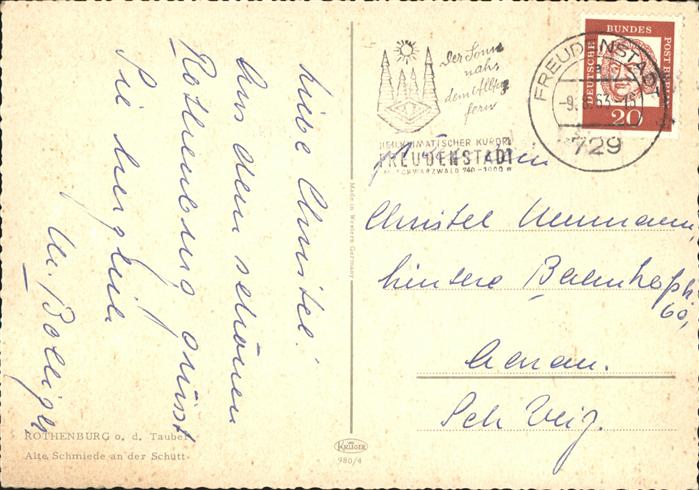 Liebe Christel!
Aus dem schönen
Rothenburg grüsst
Sie herzlich
M. Bolliger
ROTHENBURG o. d. Tauber
Alte Schmiede an der Schütt
Made in Western Germany
KRÜGER
980/4
Der Sonne
nah,
dem Alltag
fern
HEILKLIMATISCHER KURORT
FREUDENSTADT
SCHWARZWALD 740-1000 m
FREUDENSTADT
-9. 63-16
729
DEUTSCHE BUNDESPOST BERLIN
20
Christel Neumann,
hintere Bahnhofstr.
60,
Aarau.
Schweiz.